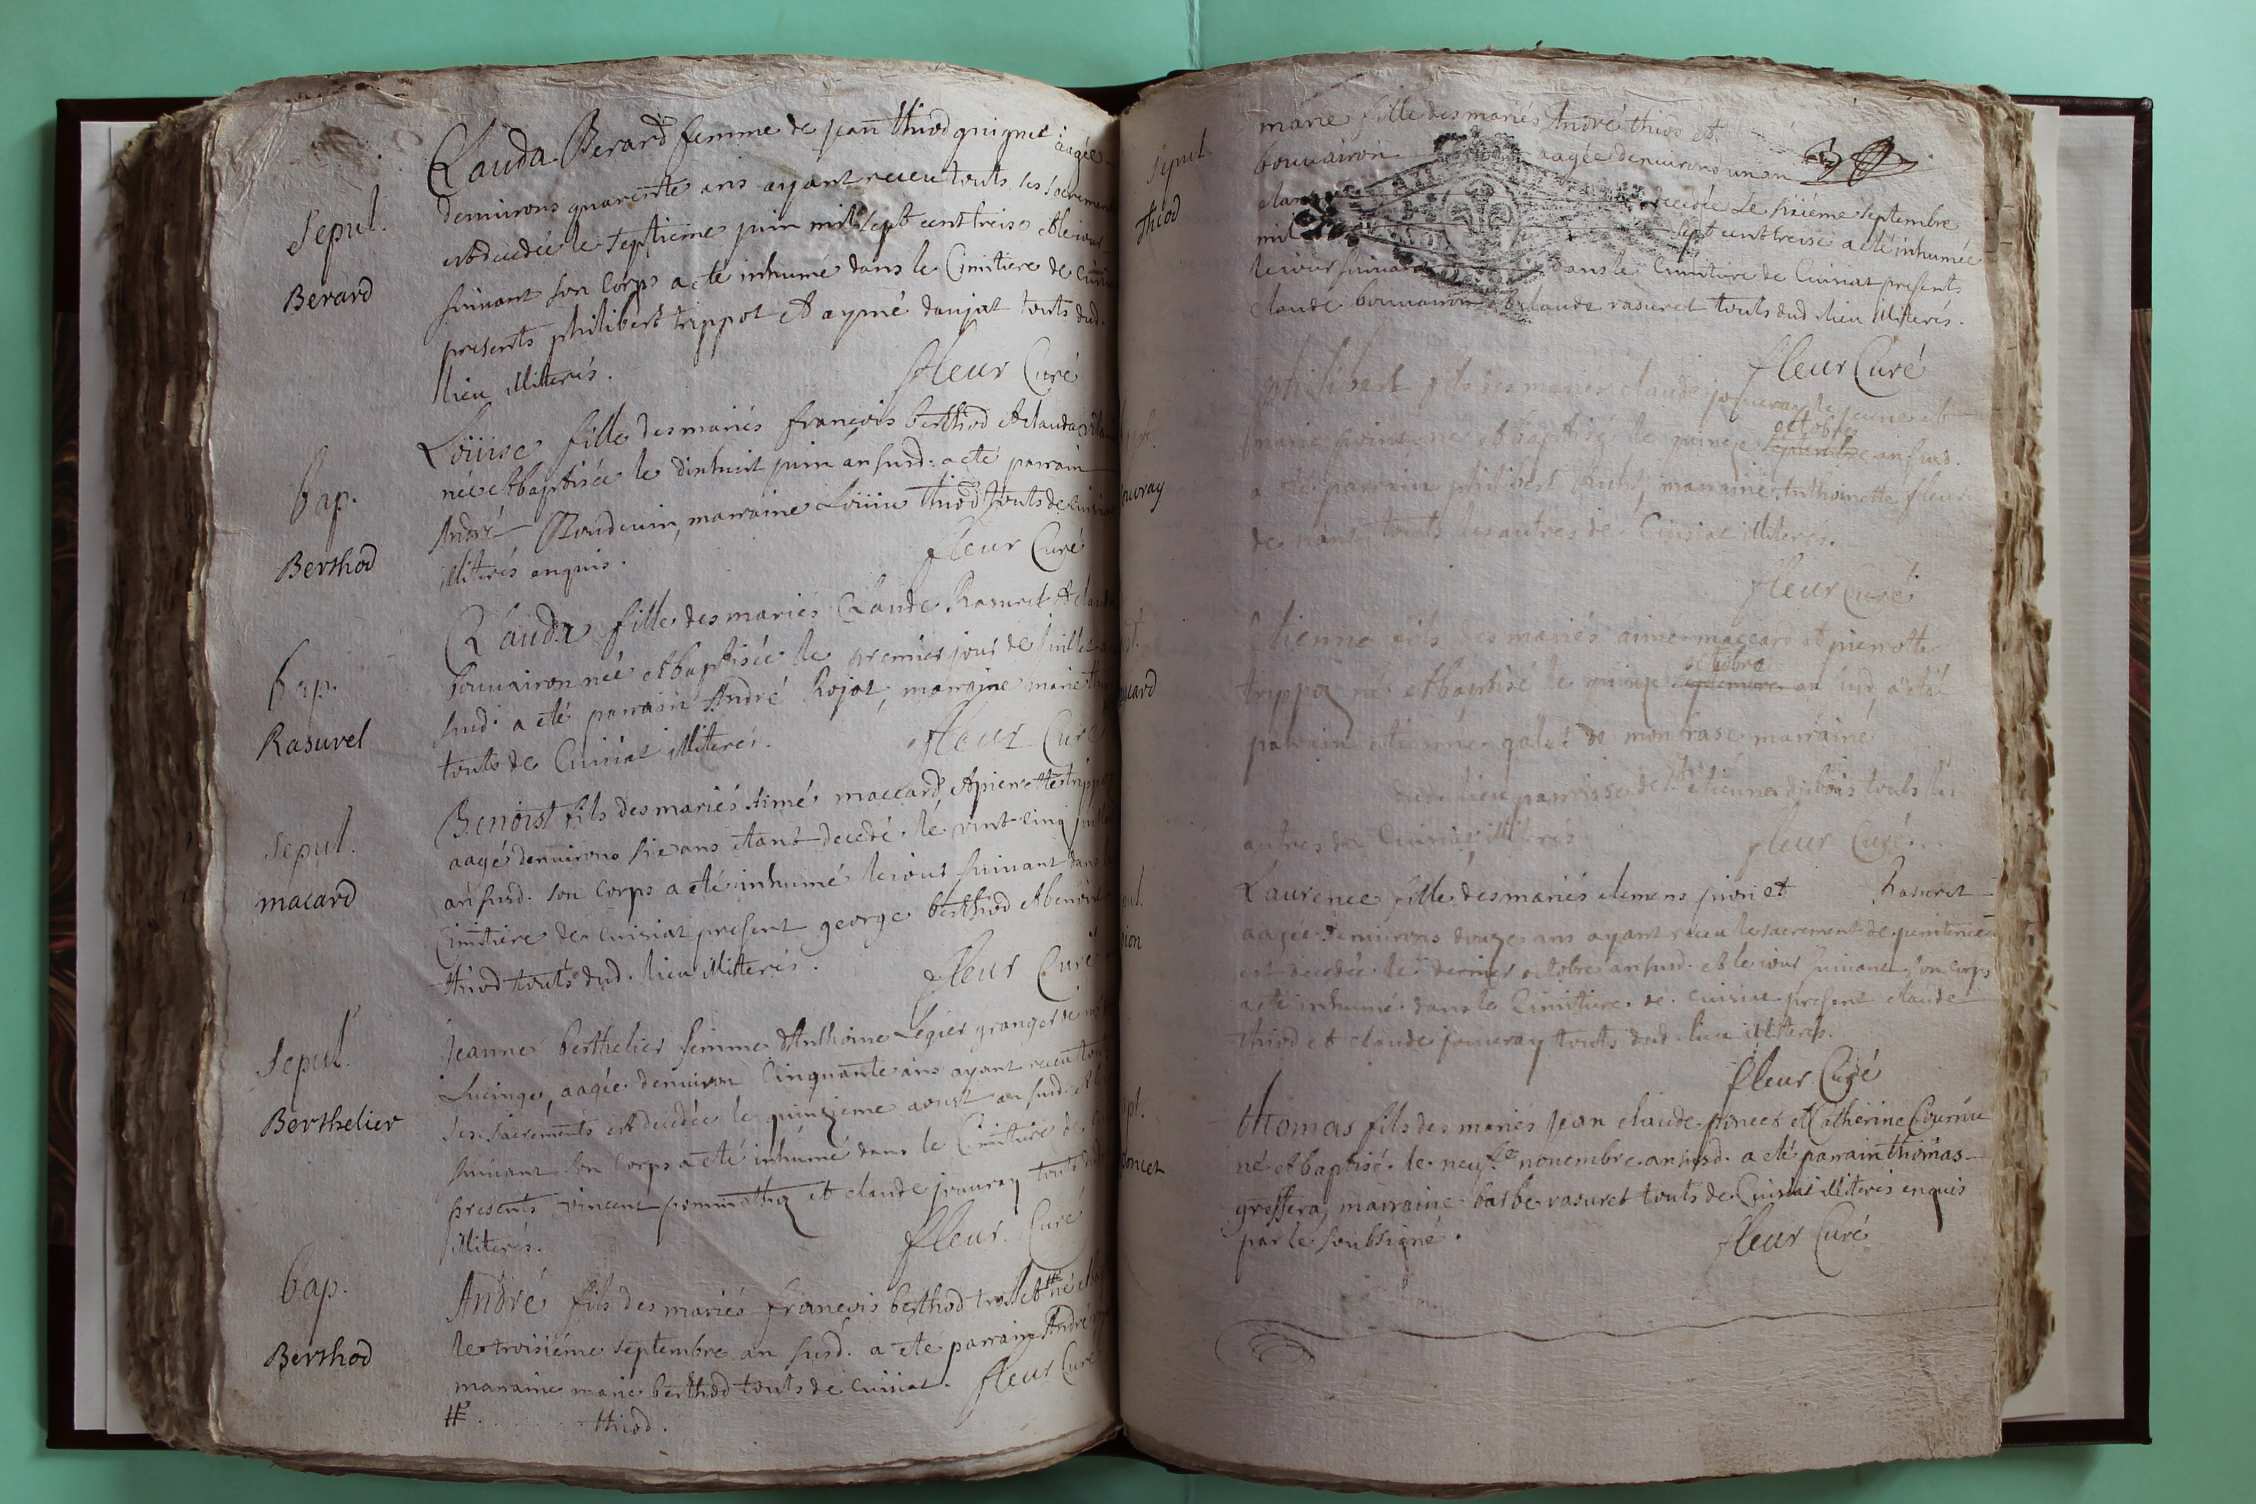 Clauda Berard femme de jean thiod guignet aagée
Sepul.
Berard
denuirons quarente ans ayant receu touts ses sacrements
est decedée le septieme juin mil sept cent treise et le iour
suiuant son corps a eté inhumé dans le Cimitiere de
presents philibert trippot et aymé daujat touts dud.
lieu illiterés.
fleur Curé
bap.
Berthod
Loüise fille des mariés françois berthod et clauda
née et baptisée le dixhuit juin an susd. a eté parrain
André marraine Loüise thiod touts de
illiterés enquis.
fleur Curé
bap.
Rasurel
Clauda fille des mariés Claude Rasurel et
bouuairon née et baptisée le premier jour de Juillet
susd. a eté parrain André Rojat, marraine marie
touts de Cuisiat illiterés.
fleur Curé
Sepul.
macard
Benoist fils des mariés Aimé maccard et pierrette
aagé denuirons six ans etant decedé le vint cinq
an susd. son corps a eté inhumé le iour suiuant dans
Cimitiere de cuisiat present george berthod et benoist
thiod touts dud. lieu illiterés.
fleur Curé
Sepul.
Berthelier
Jeanne berthelier femme d'Anthoine Legier granger de
Lucinge, aagée denuiron Cinquante ans ayant receu
ses sacrements est decedée le quinzieme aoust an susd. et le
suiuant son corps a eté inhumé dans le Cimitiere de
presents vincent et claude jouuray touts
illiterés.
fleur Curé
bap.
Berthod
André fils des mariés françois berthod et né
le troisiéme septembre an susd. a eté parrain André
marraine marie berthod touts de cuisiat.
fleur Curé
thiod.
Sepul.
thiod
marie fille des mariés André thiod et
bouuairon aagée denuirons un an
etant decedée Le sixiéme septembre
mil sept cent treise a eté inhumée
le iour suiuant dans le Cimitiere de Cuisiat presents
claude bouuairon et claude rasurel touts dud. lieu illiterés.
fleur Curé
jouuray
philibert fils des mariés claude jouuray le jeune et
marie né et baptisé le quinze octobre septembre an susd.
a eté parrain philibert marraine Anthoinette fleur
de touts les autres de Cuisiat illiterés.
fleur Curé
Etienne fils des mariés aimé maccard et pierrette
macard
trippoz né et baptisé le quinze octobre septembre an susd. a eté
parrain etienne de marraine
dud. lieu parroisse de etienne dubois touts les
autres de Cuisiat illiterés
fleur Curé
pion
Laurence fille des mariés clemens pion et
aagée denuirons douze ans ayant receu le sacrement de penitence
est decedée le dernier octobre an susd. et le iour suiuant son corps
a eté inhumé dans le Cimitiere de cuisiat present claude
thiod et claude jouuray touts dud. lieu illiterés.
fleur Curé
poncet
thomas fils des mariés jean claude poncet et Catherine
né et baptisé le neuf.e nouembre an susd. a eté parrain thomas
marraine barbe rasurel touts de Cuisiat illiterés enquis
par le soubsigné.
fleur Curé